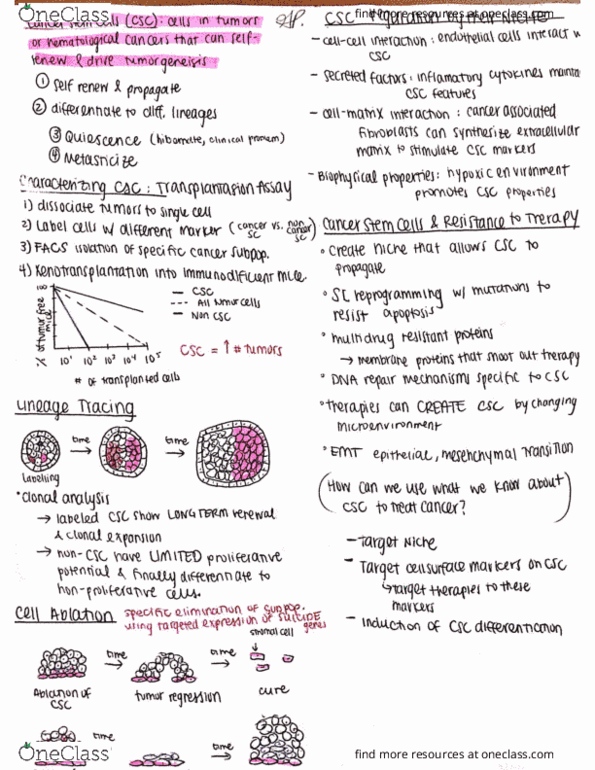 OneClass
Cancer stem cells (CSC): cells in tumors
or hematological cancers that can self-
renew & drive tumorgeneisis
① self renew & propagate
② differentiate to diff. lineages
③ Quiescence
④ Metasticize
Characterizing CSC: Transplantasion Assay
1) dissociate tumors to single cell
2) Label cells w/ different marker (cancer SC vs. non cancer SC)
3) FACS isolation of specific cancer subpop.
4) Xenotransplantation into immunodificient mice
100
% of tumor free mice
— CSC
--- All tumor cells
— Non CSC
10¹ 10² 10³ 10⁴ 10⁵
# of transplanted cells
CSC = ↑ # tumors
Lineage Tracing
time
→
time
→
Labelling
• Clonal analysis
→ labeled CSC show LONG TERM renewal
& clonal expansion
→ non-CSC have LIMITED proliferative
potential & finally differentiate to
non-proliferative cells.
Cell Ablation specific elimination of subpop.
using targeted expression of suicide genes
stromal cell
time
→
time
→
Ablation of
CSC
tumor regression
cure
time
→
time
→
OneClass
find more resources at oneclass.com
- cell-cell interaction: endothelial cells interact w
CSC
- secreted factors: inflamatory cytokines mainta
CSC features
- cell-matrix interaction: cancer associated
fibroblasts can synthesize extracellular
matrix to stimulate CSC markers
- Biophysical properties: hypoxic environment
promotes CSC properties
Cancer Stem Cells & Resistance to Therapy
• Create niche that allows CSC to
propagate
• SC reprogramming w/ mutations to
resist apoptosis
• multidrug resistant proteins
→ membrane proteins that shoot out therapy
• DNA repair mechanisms specific to CSC
• therapies can CREATE CSC by changing
microenvironment
• EMT epithelial, mesenchymal transition
(How can we use what we know about
CSC to treat cancer?)
- Target Niche
- Target cell surface markers on CSC
↳ target therapies to these
markers
- induction of CSC differentiation
find more resources at oneclass.com